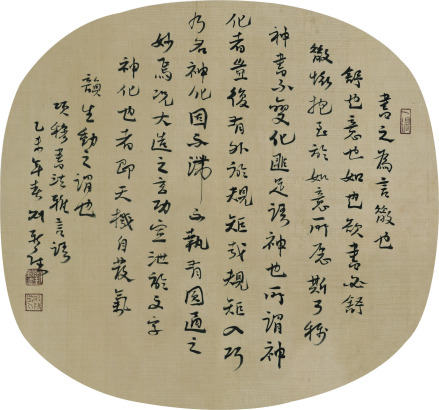 書之為言散也
舒也意也如也欲書必舒
散懷抱至於如意所願斯可稱
神書不變化匪足語神也所謂神
化者豈復有外於規矩哉規矩入巧
乃名神化固不滯不執有圓通之
妙焉況大造之玄功宣泄於文字
神化也者即天機自發氣
韻生動之謂也
項穆書法雅言語
乙未年春刘